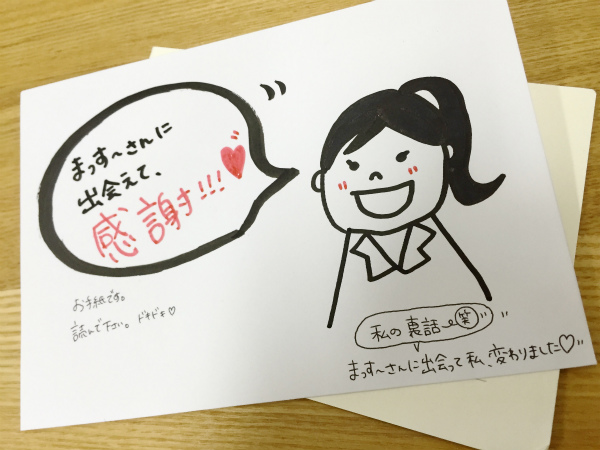 まっす〜さんに
出会えて、
感謝!!!
お手紙です。
読んで下さい。ドキドキ♡
私の裏話 笑
まっす〜さんに出会って私、変わりました♡